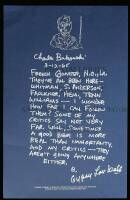 Charles Bukowski
3-12-65
French Quarter, N.O. La.
They've all been here -
Whitman, S. Anderson,
Faulkner, Hem, Tenn
Williams - I wonder
how far I can follow
them? Some of my
critics say not very
far. Well, sometimes
a good beer is more
real than immortality
and my critics - they
aren't going anywhere
either.